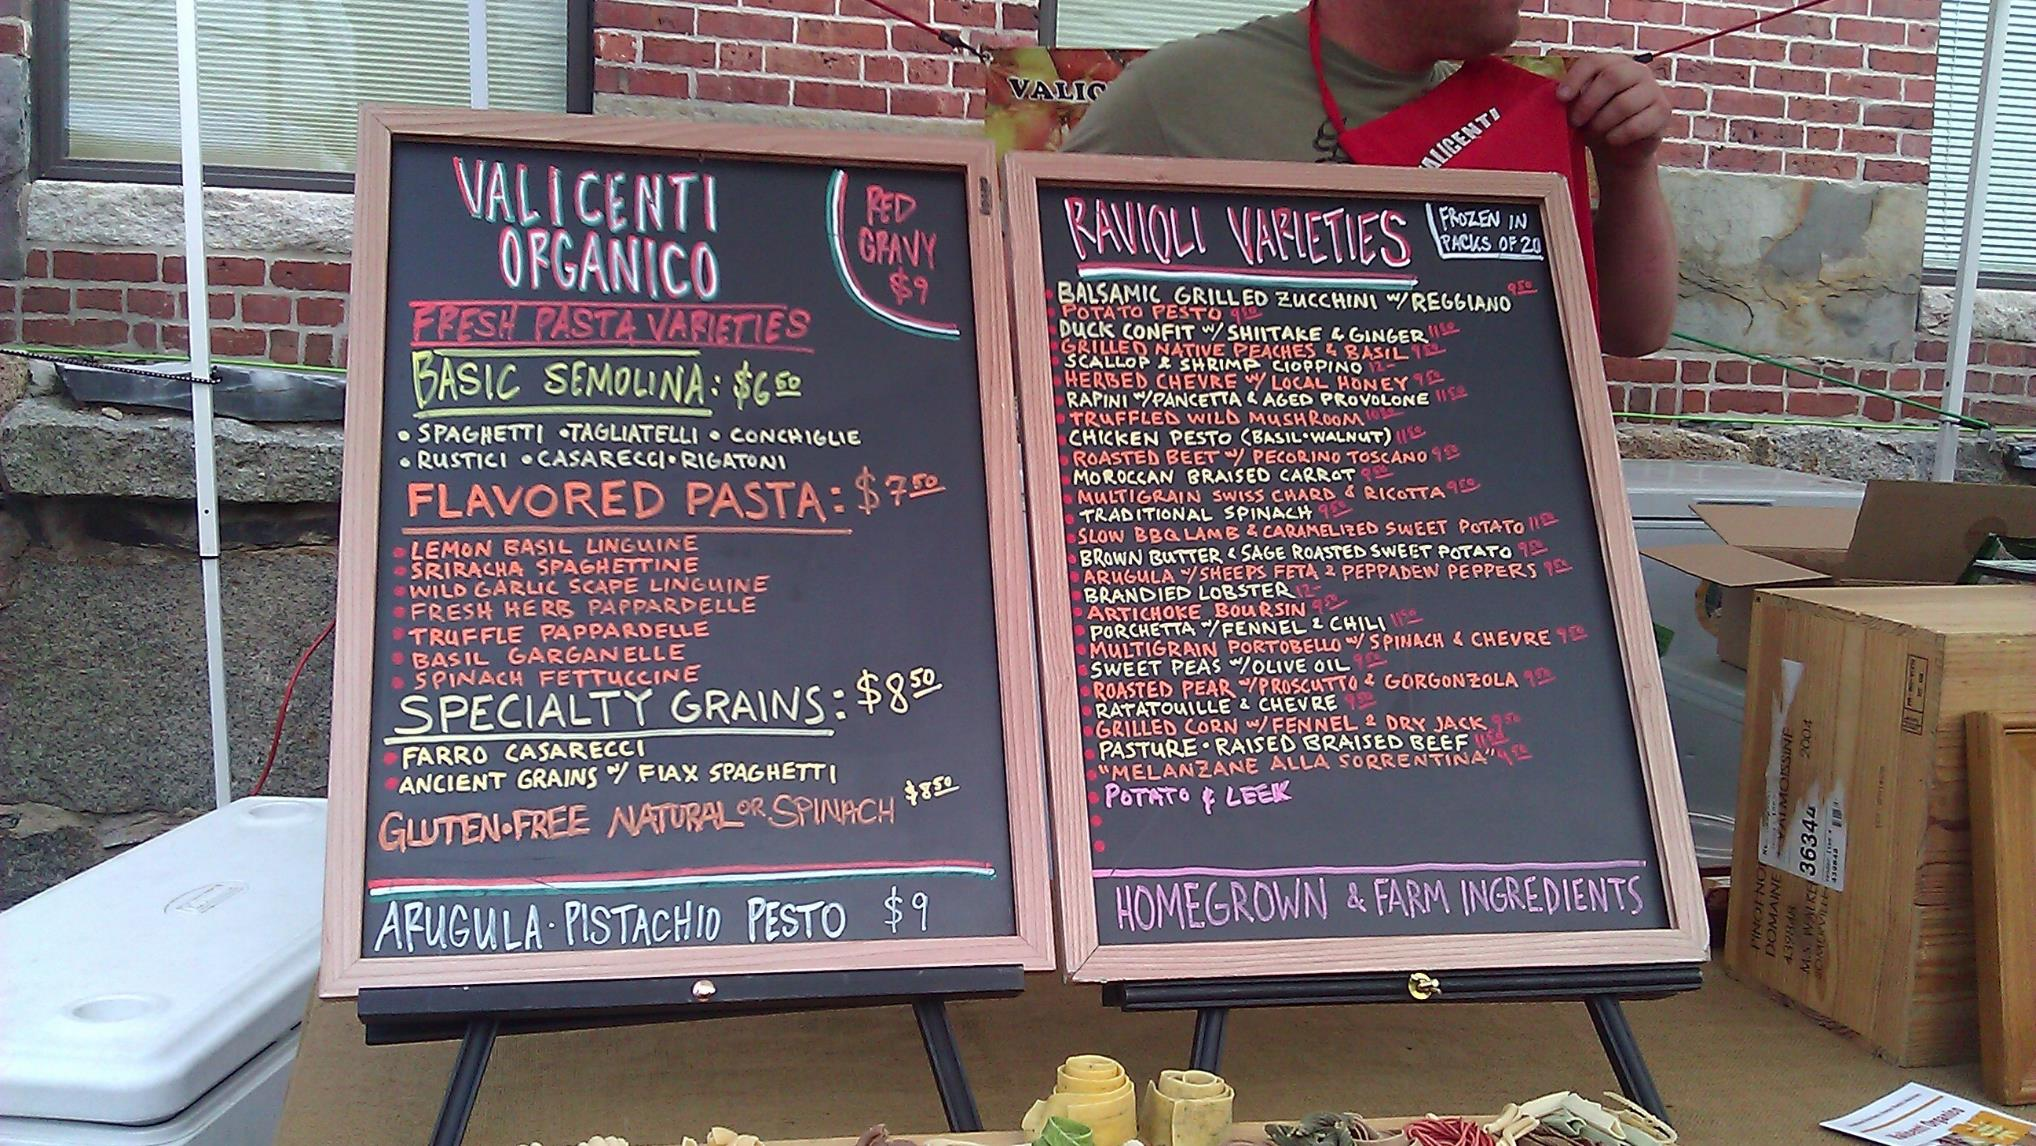 VALICENTI
ORGANICO
RED
GRAVY
$9
FRESH PASTA VARIETIES
BASIC SEMOLINA: $6 50
• SPAGHETTI • TAGLIATELLI • CONCHIGLIE
• RUSTICI • CASARECCI • RIGATONI
FLAVORED PASTA: $7 50
• LEMON BASIL LINGUINE
• SRIRACHA SPAGHETTINE
• WILD GARLIC SCAPE LINGUINE
• FRESH HERB PAPPARDELLE
• TRUFFLE PAPPARDELLE
• BASIL GARGANELLE
• SPINACH FETTUCCINE
SPECIALTY GRAINS: $8 50
• FARRO CASARECCI
• ANCIENT GRAINS W/ FLAX SPAGHETTI
GLUTEN•FREE NATURAL OR SPINACH $8 50
ARUGULA • PISTACHIO PESTO $9
RAVIOLI VARIETIES
FROZEN IN
PACKS OF 20
• BALSAMIC GRILLED ZUCCHINI W/ REGGIANO 9 50
• POTATO PESTO 9 50
• DUCK CONFIT W/ SHIITAKE & GINGER 11 50
• GRILLED NATIVE PEACHES & BASIL 9 50
• SCALLOP & SHRIMP CIOPPINO 12-
• HERBED CHEVRE W/ LOCAL HONEY 9 50
• RAPINI W/ PANCETTA & AGED PROVOLONE 11 50
• TRUFFLED WILD MUSHROOM 10 50
• CHICKEN PESTO (BASIL•WALNUT) 11 50
• ROASTED BEET W/ PECORINO TOSCANO 9 50
• MOROCCAN BRAISED CARROT 9 50
• MULTIGRAIN SWISS CHARD & RICOTTA 9 50
• TRADITIONAL SPINACH 9 50
• SLOW BBQ LAMB & CARAMELIZED SWEET POTATO 11 50
• BROWN BUTTER & SAGE ROASTED SWEET POTATO 9 50
• ARUGULA W/ SHEEPS FETA & PEPPADEW PEPPERS 9 50
• BRANDIED LOBSTER 12-
• ARTICHOKE BOURSIN 9 50
• PORCHETTA W/ FENNEL & CHILI 11 50
• MULTIGRAIN PORTOBELLO W/ SPINACH & CHEVRE 9 50
• SWEET PEAS W/ OLIVE OIL 9 50
• ROASTED PEAR W/ PROSCUTTO & GORGONZOLA 9 50
• RATATOUILLE & CHEVRE 9 50
• GRILLED CORN W/ FENNEL & DRY JACK 9 50
• PASTURE•RAISED BRAISED BEEF 11 50
• "MELANZANE ALLA SORRENTINA" 9 50
• POTATO & LEEK
HOMEGROWN & FARM INGREDIENTS
VALIC
ALICENTI
2004
36344
439848